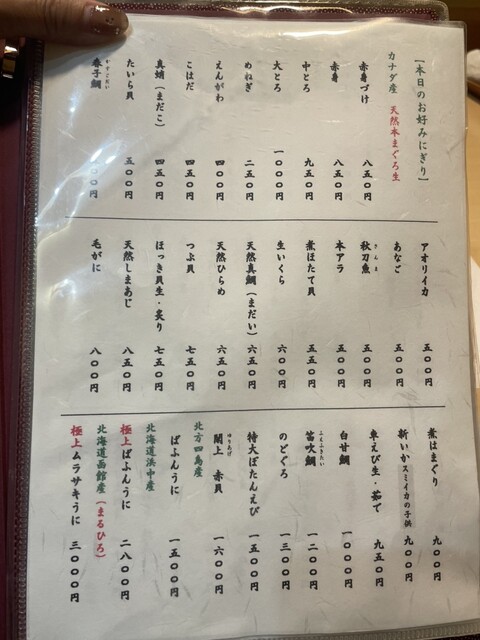 【本日のお好みにぎり】
カナダ産 天然本まぐろ生
赤身づけ 八五〇円
赤身 八五〇円
中とろ 九五〇円
大とろ 一〇〇〇円
めねぎ 二五〇円
えんがわ 四〇〇円
こはだ 四五〇円
真蛸(まだこ) 四五〇円
たいら貝 五〇〇円
春子鯛 〇〇円
アオリイカ 五〇〇円
あなご 五〇〇円
秋刀魚 五〇〇円
さんま
本アラ 五五〇円
煮ほたて貝 五五〇円
生いくら 六〇〇円
天然真鯛(まだい) 六五〇円
天然ひらめ 六五〇円
つぶ貝 七五〇円
ほっき貝生・炙り 七五〇円
天然しまあじ 八五〇円
毛がに 八〇〇円
煮はまぐり 九〇〇円
新いかスミイカの子供 九〇〇円
車えび生・茹で 九五〇円
白甘鯛 一〇〇〇円
笛吹鯛 一二〇〇円
のどぐろ 一三〇〇円
特大ぼたんえび 一五〇〇円
閖上 赤貝 一六〇〇円
ゆりあげ
北方四島産
ばふんうに 一五〇〇円
北海道浜中産
極上ばふんうに 二八〇〇円
北海道函館産(まるひろ)
極上ムラサキうに 三〇〇〇円